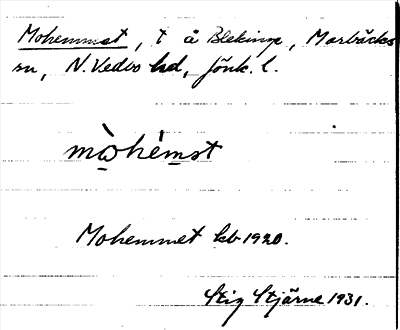 Mohemmet, t å Blekinge, Marbäcks
sn, N. Vedbo hd, Jönk. l.
mò̱hèm̱st
Mohemmet kb 1920.
Stig Stjärne 1931.